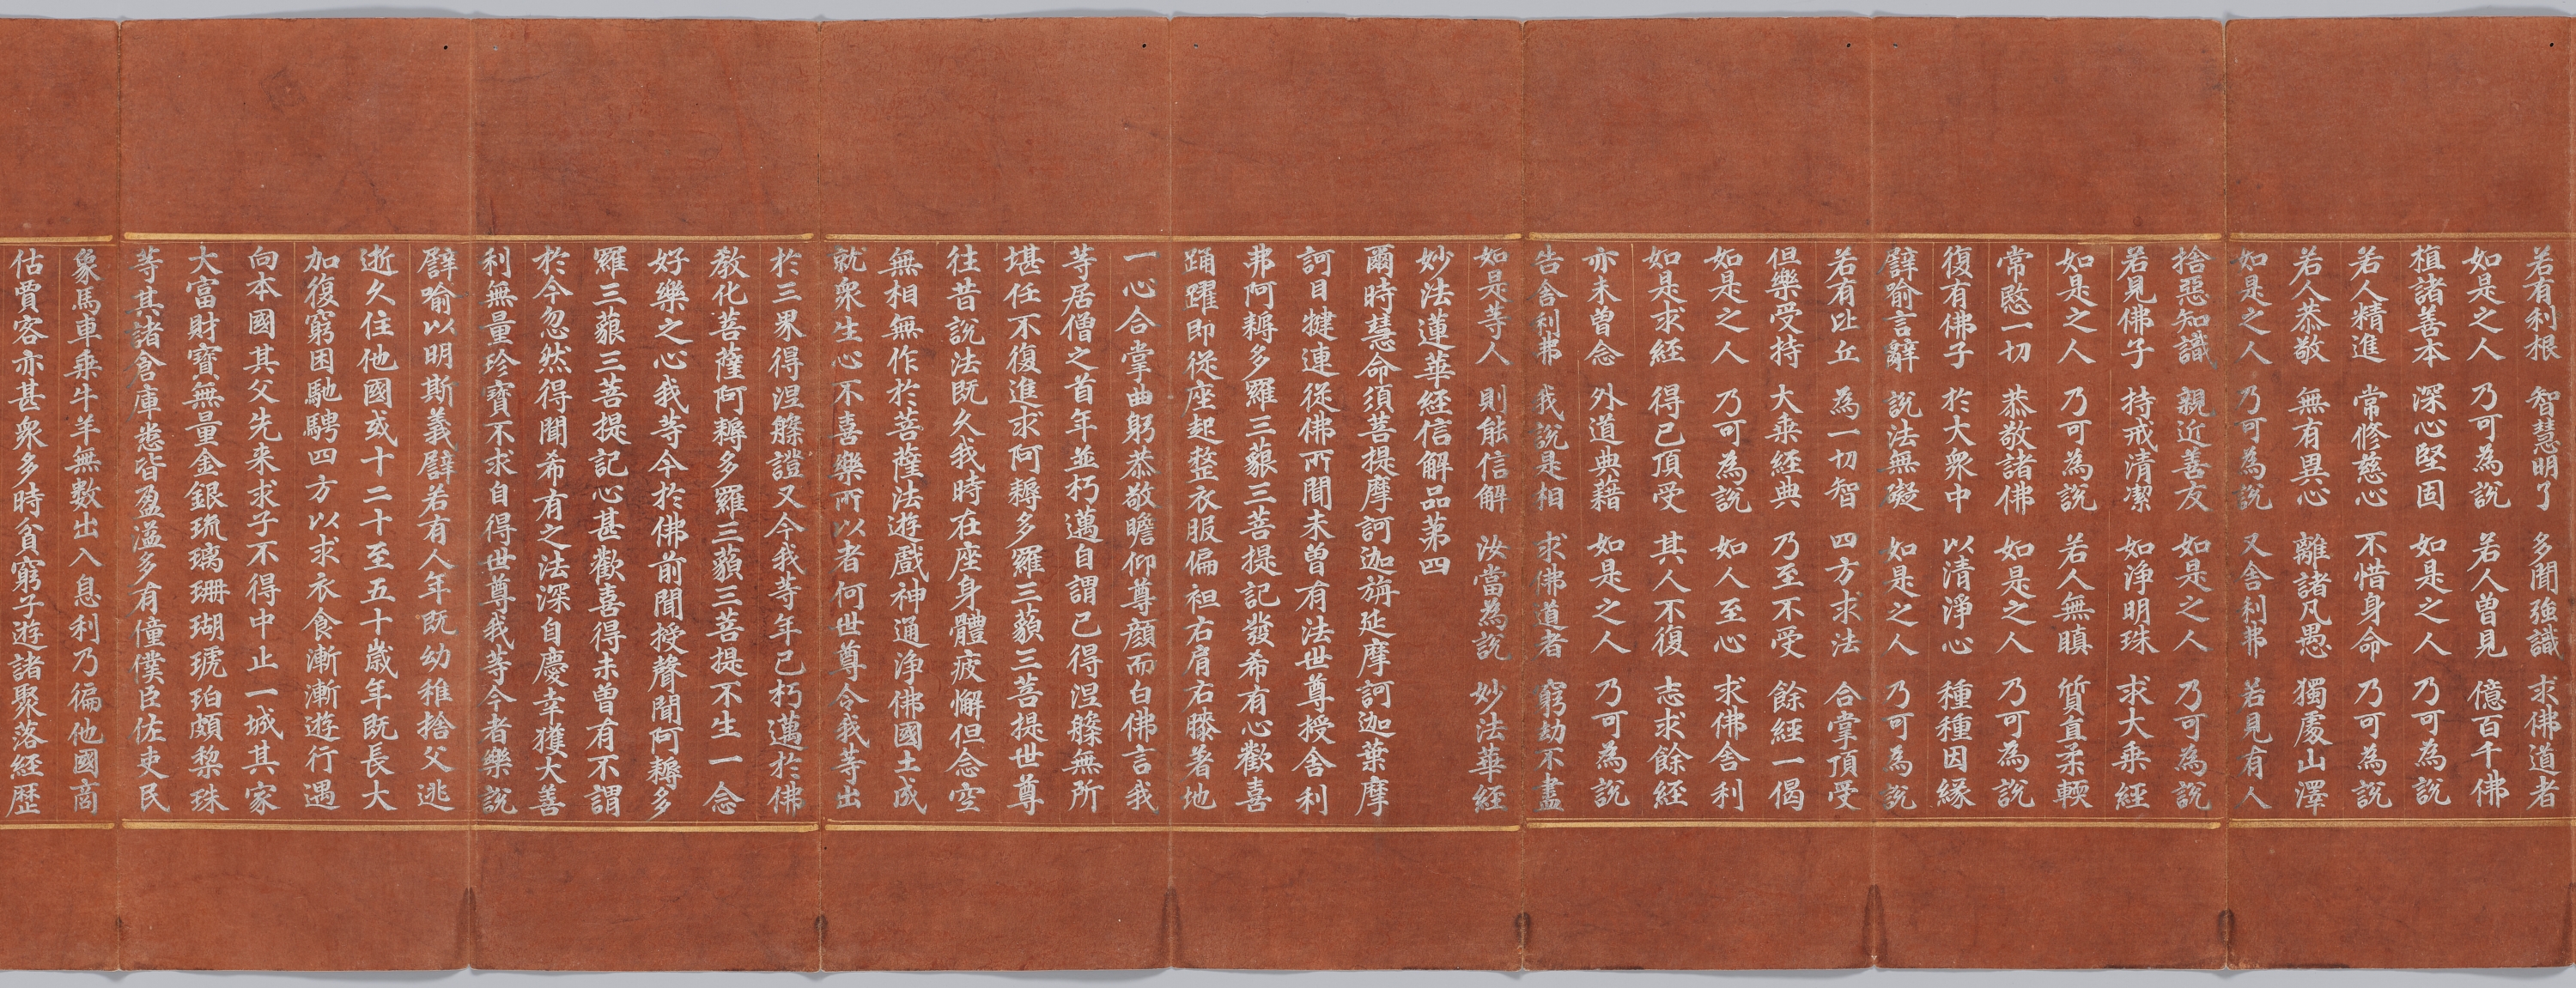 若有利根　智慧明了　多聞强識　求佛道者
如是之人　乃可為說　若人曾見　億百千佛
植諸善本　深心堅固　如是之人　乃可為說
若人精進　常修慈心　不惜身命　乃可為說
若人恭敬　無有異心　離諸凡愚　獨處山澤
如是之人　乃可為說　又舍利弗　若見有人
捨惡知識　親近善友　如是之人　乃可為說
若見佛子　持戒清潔　如淨明珠　求大乘經
如是之人　乃可為說　若人無瞋　質直柔輭
常愍一切　恭敬諸佛　如是之人　乃可為說
復有佛子　於大衆中　以清淨心　種種因緣
譬喻言辭　說法無礙　如是之人　乃可為說
若有比丘　為一切智　四方求法　合掌頂受
但樂受持　大乘經典　乃至不受　餘經一偈
如是之人　乃可為說　如人至心　求佛舍利
如是求經　得已頂受　其人不復　志求餘經
亦未曾念　外道典藉　如是之人　乃可為說
告舍利弗　我說是相　求佛道者　窮劫不盡
如是等人　則能信解　汝當為說　妙法華經
妙法蓮華經信解品第四
爾時慧命須菩提摩訶迦旃延摩訶迦葉摩
訶目犍連從佛所聞未曾有法世尊授舍利
弗阿耨多羅三藐三菩提記發希有心歡喜
踊躍即從座起整衣服偏袒右肩右膝著地
一心合掌曲躬恭敬瞻仰尊顏而白佛言我
等居僧之首年並朽邁自謂已得涅槃無所
堪任不復進求阿耨多羅三藐三菩提世尊
往昔說法既久我時在座身體疲懈但念空
無相無作於菩薩法遊戲神通淨佛國土成
就衆生心不喜樂所以者何世尊令我等出
於三界得涅槃證又今我等年已朽邁於佛
教化菩薩阿耨多羅三藐三菩提不生一念
好樂之心我等今於佛前聞授聲聞阿耨多
羅三藐三菩提記心甚歡喜得未曾有不謂
於今忽然得聞希有之法深自慶幸獲大善
利無量珍寶不求自得世尊我等今者樂說
譬喻以明斯義譬若有人年既幼稚捨父逃
逝久住他國或十二十至五十歲年既長大
加復窮困馳騁四方以求衣食漸漸遊行遇
向本國其父先來求子不得中止一城其家
大富財寶無量金銀琉璃珊瑚琥珀頗梨珠
等其諸倉庫悉皆盈溢多有僮僕臣佐吏民
象馬車乘牛羊無數出入息利乃徧他國商
估賈客亦甚衆多時貧窮子遊諸聚落經歷